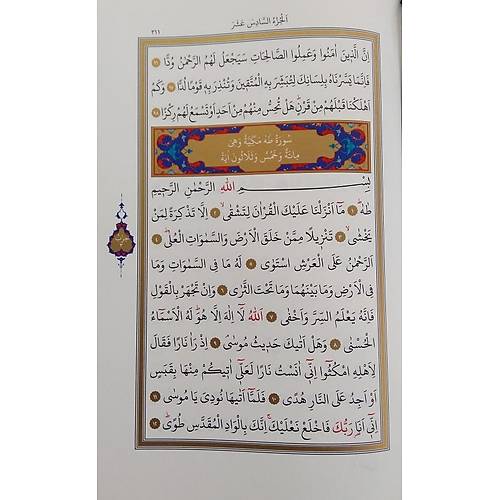 ٣١١ اَلْجُزْءُ السَّادِسُ عَشَرَ
اِنَّ الَّذٖينَ اٰمَنُوا وَعَمِلُوا الصَّالِحَاتِ سَيَجْعَلُ لَهُمُ الرَّحْمٰنُ وُدًّا ﴿٩٦﴾
فَاِنَّمَا يَسَّرْنَاهُ بِلِسَانِكَ لِتُبَشِّرَ بِهِ الْمُتَّقٖينَ وَتُنْذِرَ بِهٖ قَوْمًا لُدًّا ﴿٩٧﴾ وَكَمْ
اَهْلَكْنَا قَبْلَهُمْ مِنْ قَرْنٍ هَلْ تُحِسُّ مِنْهُمْ مِنْ اَحَدٍ اَوْ تَسْمَعُ لَهُمْ رِكْزًا ﴿٩٨﴾
سُورَةُ طٰهٰ مَكِّيَّةٌ وَهِيَ
مِائَةٌ وَخَمْسٌ وَثَلَاثُونَ اٰيَةً
بِسْمِ اللّٰهِ الرَّحْمٰنِ الرَّحٖيمِ
طٰهٰ ﴿١﴾ مَٓا اَنْزَلْنَا عَلَيْكَ الْقُرْاٰنَ لِتَشْقٰى ﴿٢﴾ اِلَّا تَذْكِرَةً لِمَنْ
يَخْشٰى ﴿٣﴾ تَنْزٖيلًا مِمَّنْ خَلَقَ الْاَرْضَ وَالسَّمٰوَاتِ الْعُلٰى ﴿٤﴾
اَلرَّحْمٰنُ عَلَى الْعَرْشِ اسْتَوٰى ﴿٥﴾ لَهُ مَا فِي السَّمٰوَاتِ وَمَا
فِي الْاَرْضِ وَمَا بَيْنَهُمَا وَمَا تَحْتَ الثَّرٰى ﴿٦﴾ وَاِنْ تَجْهَرْ بِالْقَوْلِ
فَاِنَّهُ يَعْلَمُ السِّرَّ وَاَخْفٰى ﴿٧﴾ اَللّٰهُ لَٓا اِلٰهَ اِلَّا هُوَ لَهُ الْاَسْمَٓاءُ
الْحُسْنٰى ﴿٨﴾ وَهَلْ اَتٰيكَ حَدٖيثُ مُوسٰى ﴿٩﴾ اِذْ رَاٰ نَارًا فَقَالَ
لِاَهْلِهِ امْكُثُٓوا اِنّٖٓي اٰنَسْتُ نَارًا لَعَلّٖٓي اٰتٖيكُمْ مِنْهَا بِقَبَسٍ
اَوْ اَجِدُ عَلَى النَّارِ هُدًى ﴿١٠﴾ فَلَمَّٓا اَتٰيهَا نُودِيَ يَا مُوسٰى ﴿١١﴾
اِنّٖٓي اَنَا۬ رَبُّكَ فَاخْلَعْ نَعْلَيْكَ اِنَّكَ بِالْوَادِ الْمُقَدَّسِ طُوًى ﴿١٢﴾